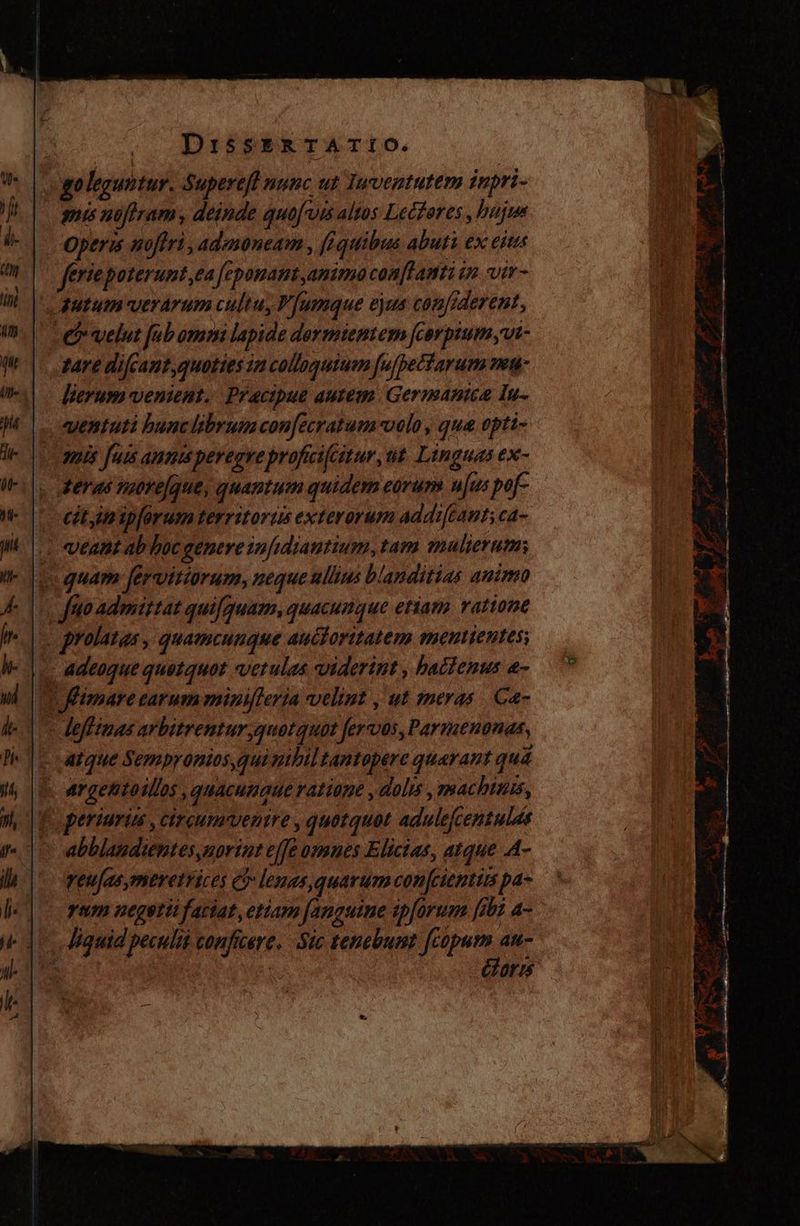 DISSERTATIO.
go leguntur. Superest nunc ut Iuventutem inpri-
mis nostram, deinde quosvis alios Lectores, hujus
Operis nostri, admoneam, si quibus abuti ex eius
serie poterunt, ea seponant, animo constanti in vir-
tutum verarum cultu, Vsumque ejus considerent,
& velut sub omni lapide dormientem scorpium, vi-
tare discant, quoties in colloquium suspectarum mu-
lierum venient. Præcipue autem Germanicæ Iu-
ventuti hunc librum consecratum volo, quæ opti-
mis suis annis peregre proficiscitur, ut Linguas ex-
teras moresque, quantum quidem eorum usus pos-
cit, in ipsorum territoriis exterorum addiscant; ca-
veant ab hoc genere insidiantium, tam mulierum;
quam servitiorum, neque ullius blanditias animo
suo admittat quisquam, quacunque etiam ratione
prolatas, quamcunque auctoritatem mentientes;
adeoque quotquot vetulas viderint, hactenus æ-
stimare earum ministeria velint, ut meras Cæ-
lestinas arbitrentur, quotquot servos, Parmenonas,
atque Sempronios, qui nihil tantopere quærant quà
argento illos, quacunque ratione, dolis, machinis,
periuriis, circumvenire, quotquot adulescentulas
abblandientes, norint esse omnes Elicias, atque A-
reusas, meretrices & lenas, quarum conscientiis pa-
rum negotii faciat, etiam sanguine ipsorum sibi a-
liquid peculii conficere. Sic tenebunt scopum au-
ctoris